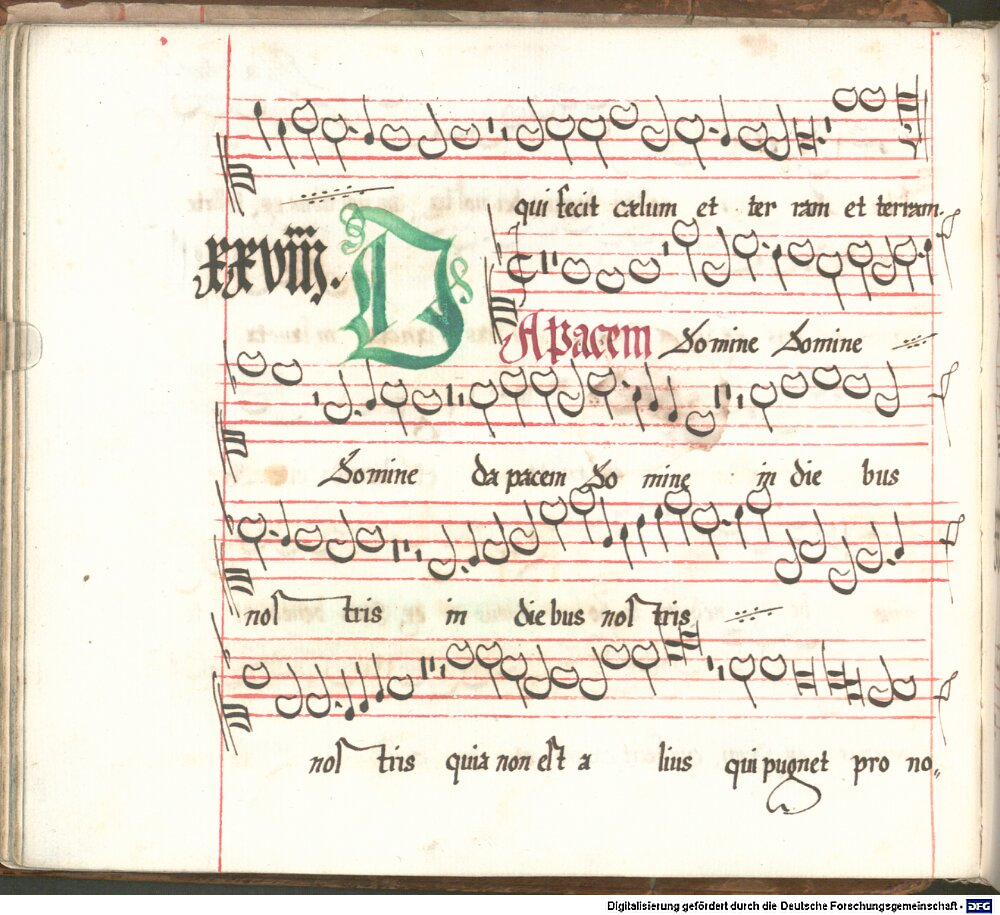 qui fecit cælum et ter ram et terram.
xxviiij.
DA pacem Domine Domine
Domine da pacem Do mine in die bus
nos tris in diebus nos tris
nos tris quia non est a lius qui pugnet pro no„
Digitalisierung gefördert durch die Deutsche Forschungsgemeinschaft - DFG